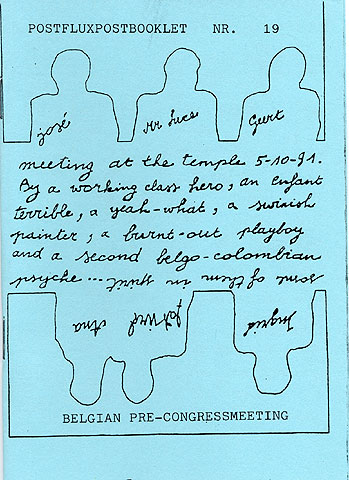 POSTFLUXPOSTBOOKLET NR. 19
josé
Mr Luce
Geert
meeting at the temple 5-10-91.
By a working class hero, an enfant
terrible, a yeah-what, a swinish
painter, a burnt-out playboy
and a second belgo-colombian
psyche...
some of them in
Ana
Ingrid
BELGIAN PRE-CONGRESSMEETING